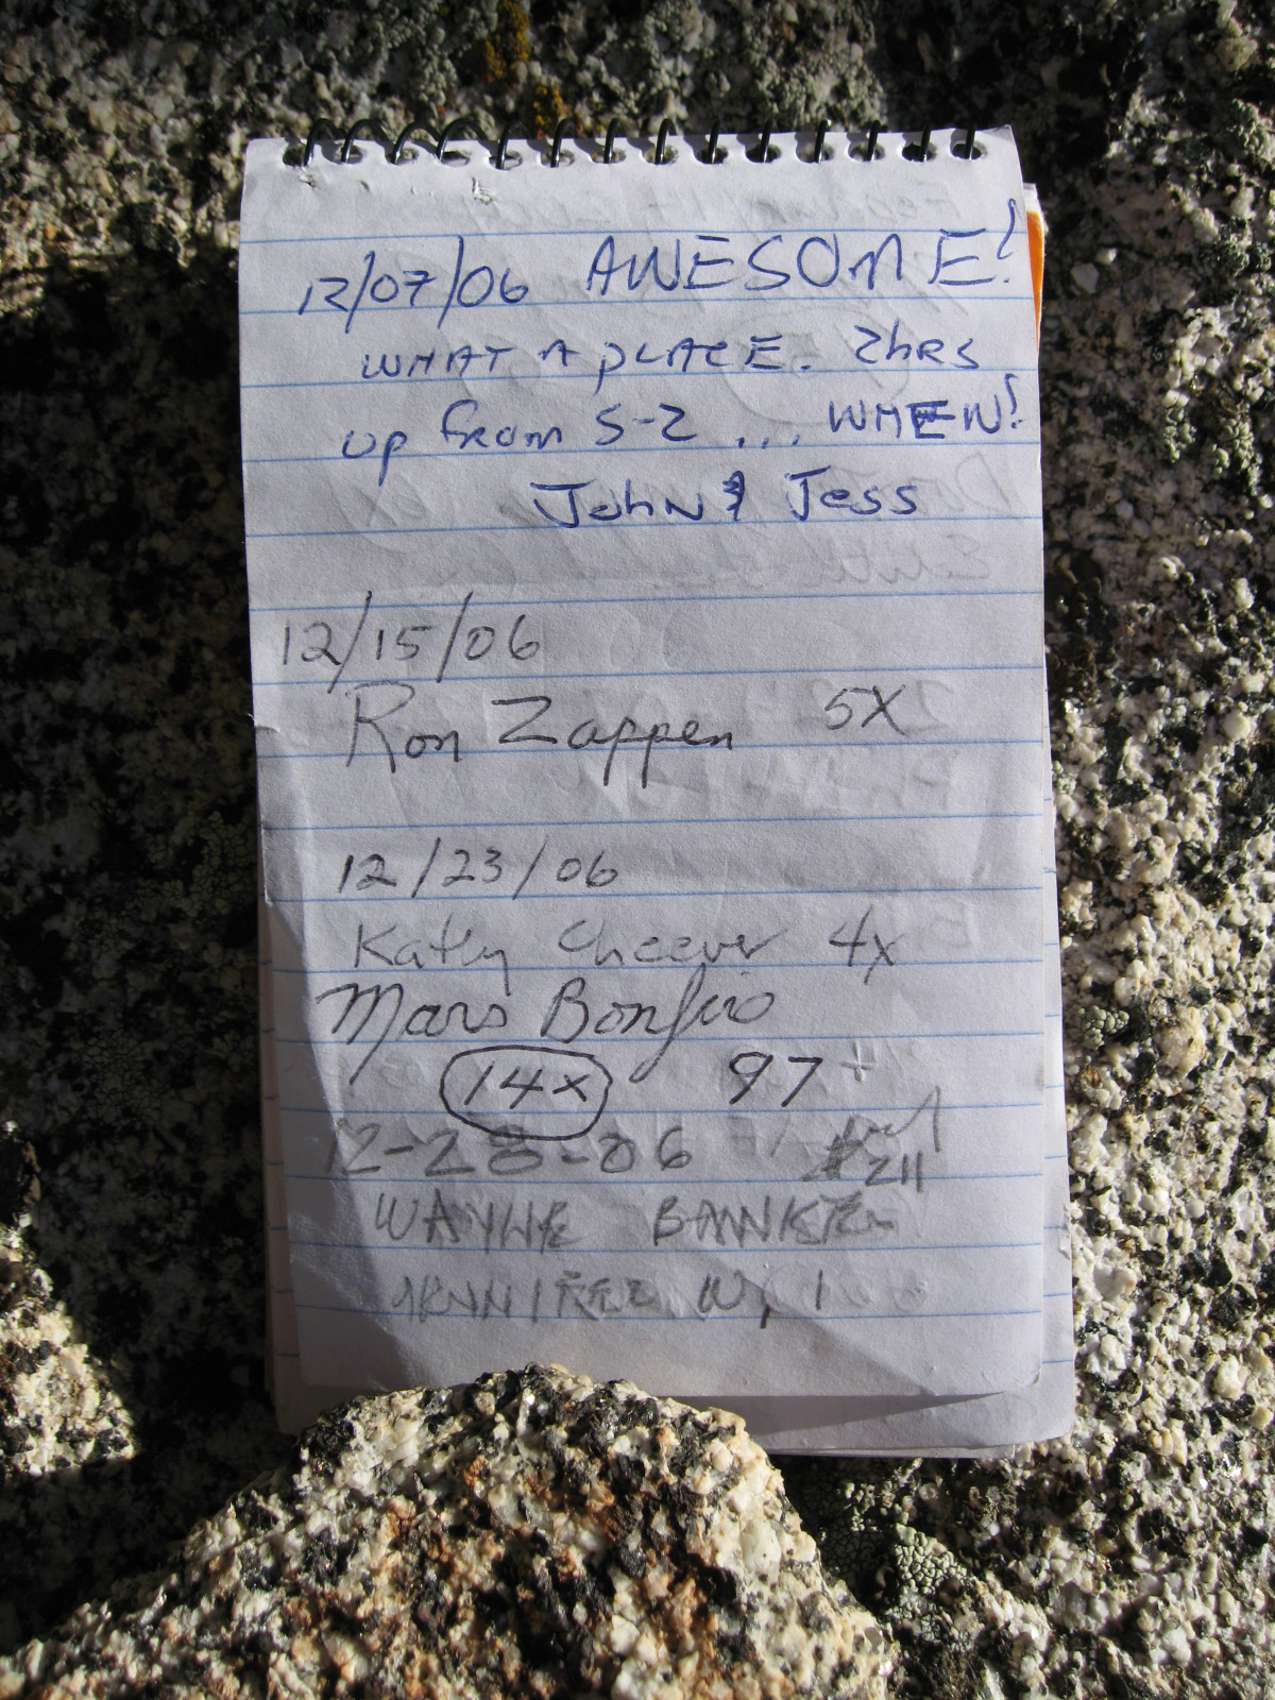 12/07/06 AWESOME!
WHAT A PLACE. 2hRS
up from S-2 ... WHEW!
John & Jess
12/15/06
Ron Zappen 5X
12/23/06
Kathy Cheever 4x
Mars Bonfire
14x 97
12-28-06 #211
WAYNE BANNISTER
JENNIFER W, 1